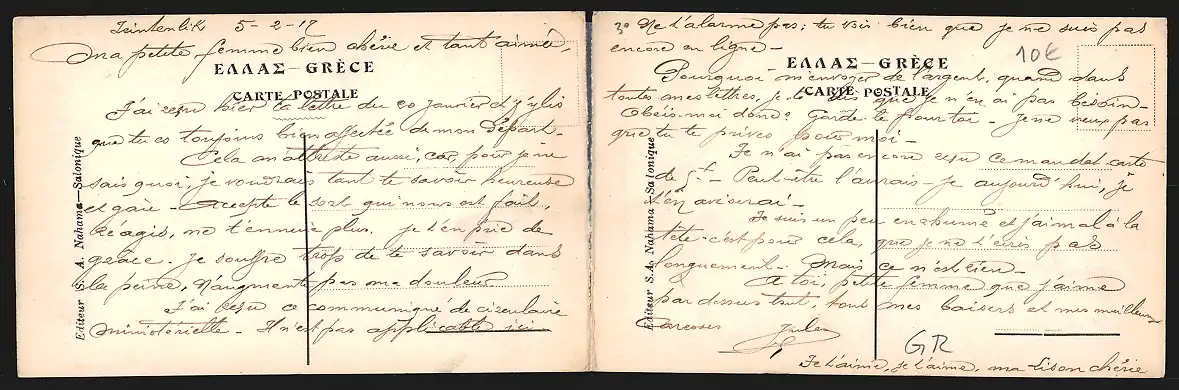 Zeintenlik 5-2-17
Ma petite femme bien chérie et tant aimée,
ΕΛΛΑΣ—GRÈCE
CARTE POSTALE
J'ai reçu hier ta lettre du 20 janvier et j'y lis
que tu es toujours bien affectée de mon départ-
Cela m'attriste aussi, car pour je ne
sais quoi, je voudrais tant te savoir heureuse
et gaie - Accepte le sort qui nous est fait,
Réagis, ne t'ennuie plus, je t'en prie de
grâce. Je souffre trop de te savoir dans
la peine, n'augmente pas ma douleur.
J'ai reçu ce communiqué de circulaire
ministérielle - Il n'est pas applicable ici
Editeur S. A. Nahama—Salonique
3° Ne t'alarme pas; tu vois bien que je ne suis pas
encore en ligne -
10€
ΕΛΛΑΣ—GRÈCE
Pourquoi m'envoyer de l'argent, quand dans
CARTE POSTALE
toutes mes lettres, je te dis que je n'en ai pas besoin-
Obéis-moi donc? Garde-le pour toi - Je ne veux pas
que tu te prives pour moi -
Je n'ai pas encore reçu ce mandat carte
de 5f - Peut-être l'aurais-je aujourd'hui, je
t'en aviserai -
Je suis un peu enrhumé et j'ai mal à la
tête - c'est pour cela, que je ne t'écris pas
longuement - Mais ce n'est rien -
A toi, petite femme que j'aime
par dessus tout, tous mes baisers et mes meilleures
caresses Jules
Editeur S. A. Nahama—Salonique
GR
Je t'aime, je t'aime, ma Lison chérie